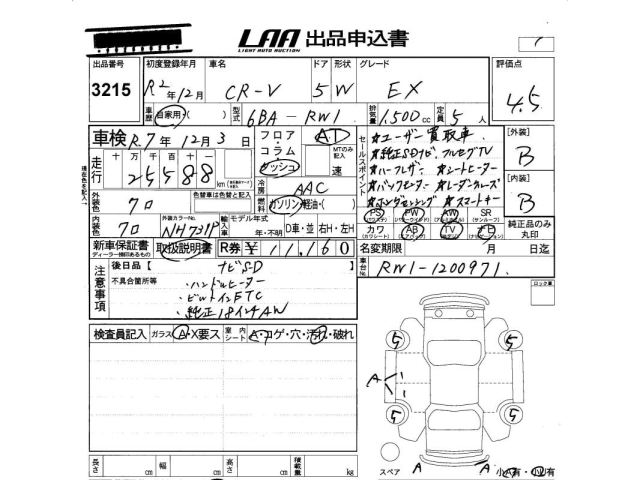 LAA 出品申込書
LIGHT AUTO AUCTION
出品番号 初度登録年月 車名 ドア 形状 グレード 評価点
3215 R2年12月 CR-V 5 W EX 4.5
車歴 自家用・( ) 型式 6BA-RW1 排気量 1,500cc 定員 5人
車検 R.7年12月3日 フロア・コラム・クラッシク AT
MTのみ記入 速
セールスポイント ★ユーザー買取車.
★純正SDナビ.フルセグTV
★ハーフレザー ★シートヒーター
★バックセンサー ★レーダークルーズ
★ホンダセンシング ★スマートキー
[外装] B
[内装] B
走行 十 万 千 百 十 一
25588 km
現在色を記入
冷房 AAC
外装色 クロ 色替車は色替と記入
ガソリン・軽油・( )
PS PW AW SR
カワ AB TV ナビ
純正品のみ丸印
内装色 クロ 外装カラーNo. NH731P
輸入車 モデル年式 年・不明 D車・並 右H・左H
新車保証書 取扱説明書 R券 ¥11,160
ディーラー捺印あるもの
名変期限 月 日迄
車台No. RW1-1200971.
注意事項 後日品【 ナビSD 】
不具合箇所等 ・ハンドルヒーター
・ビルトインETC
・純正18インチAW
ロック車
検査員記入 ガラス A・X要ス 室内シート A・コゲ・穴・汚れ・破れ
5 5
A
5 5
長さ cm 幅 cm 高さ cm 積載量 kg
スペア A A 小A有・小U有